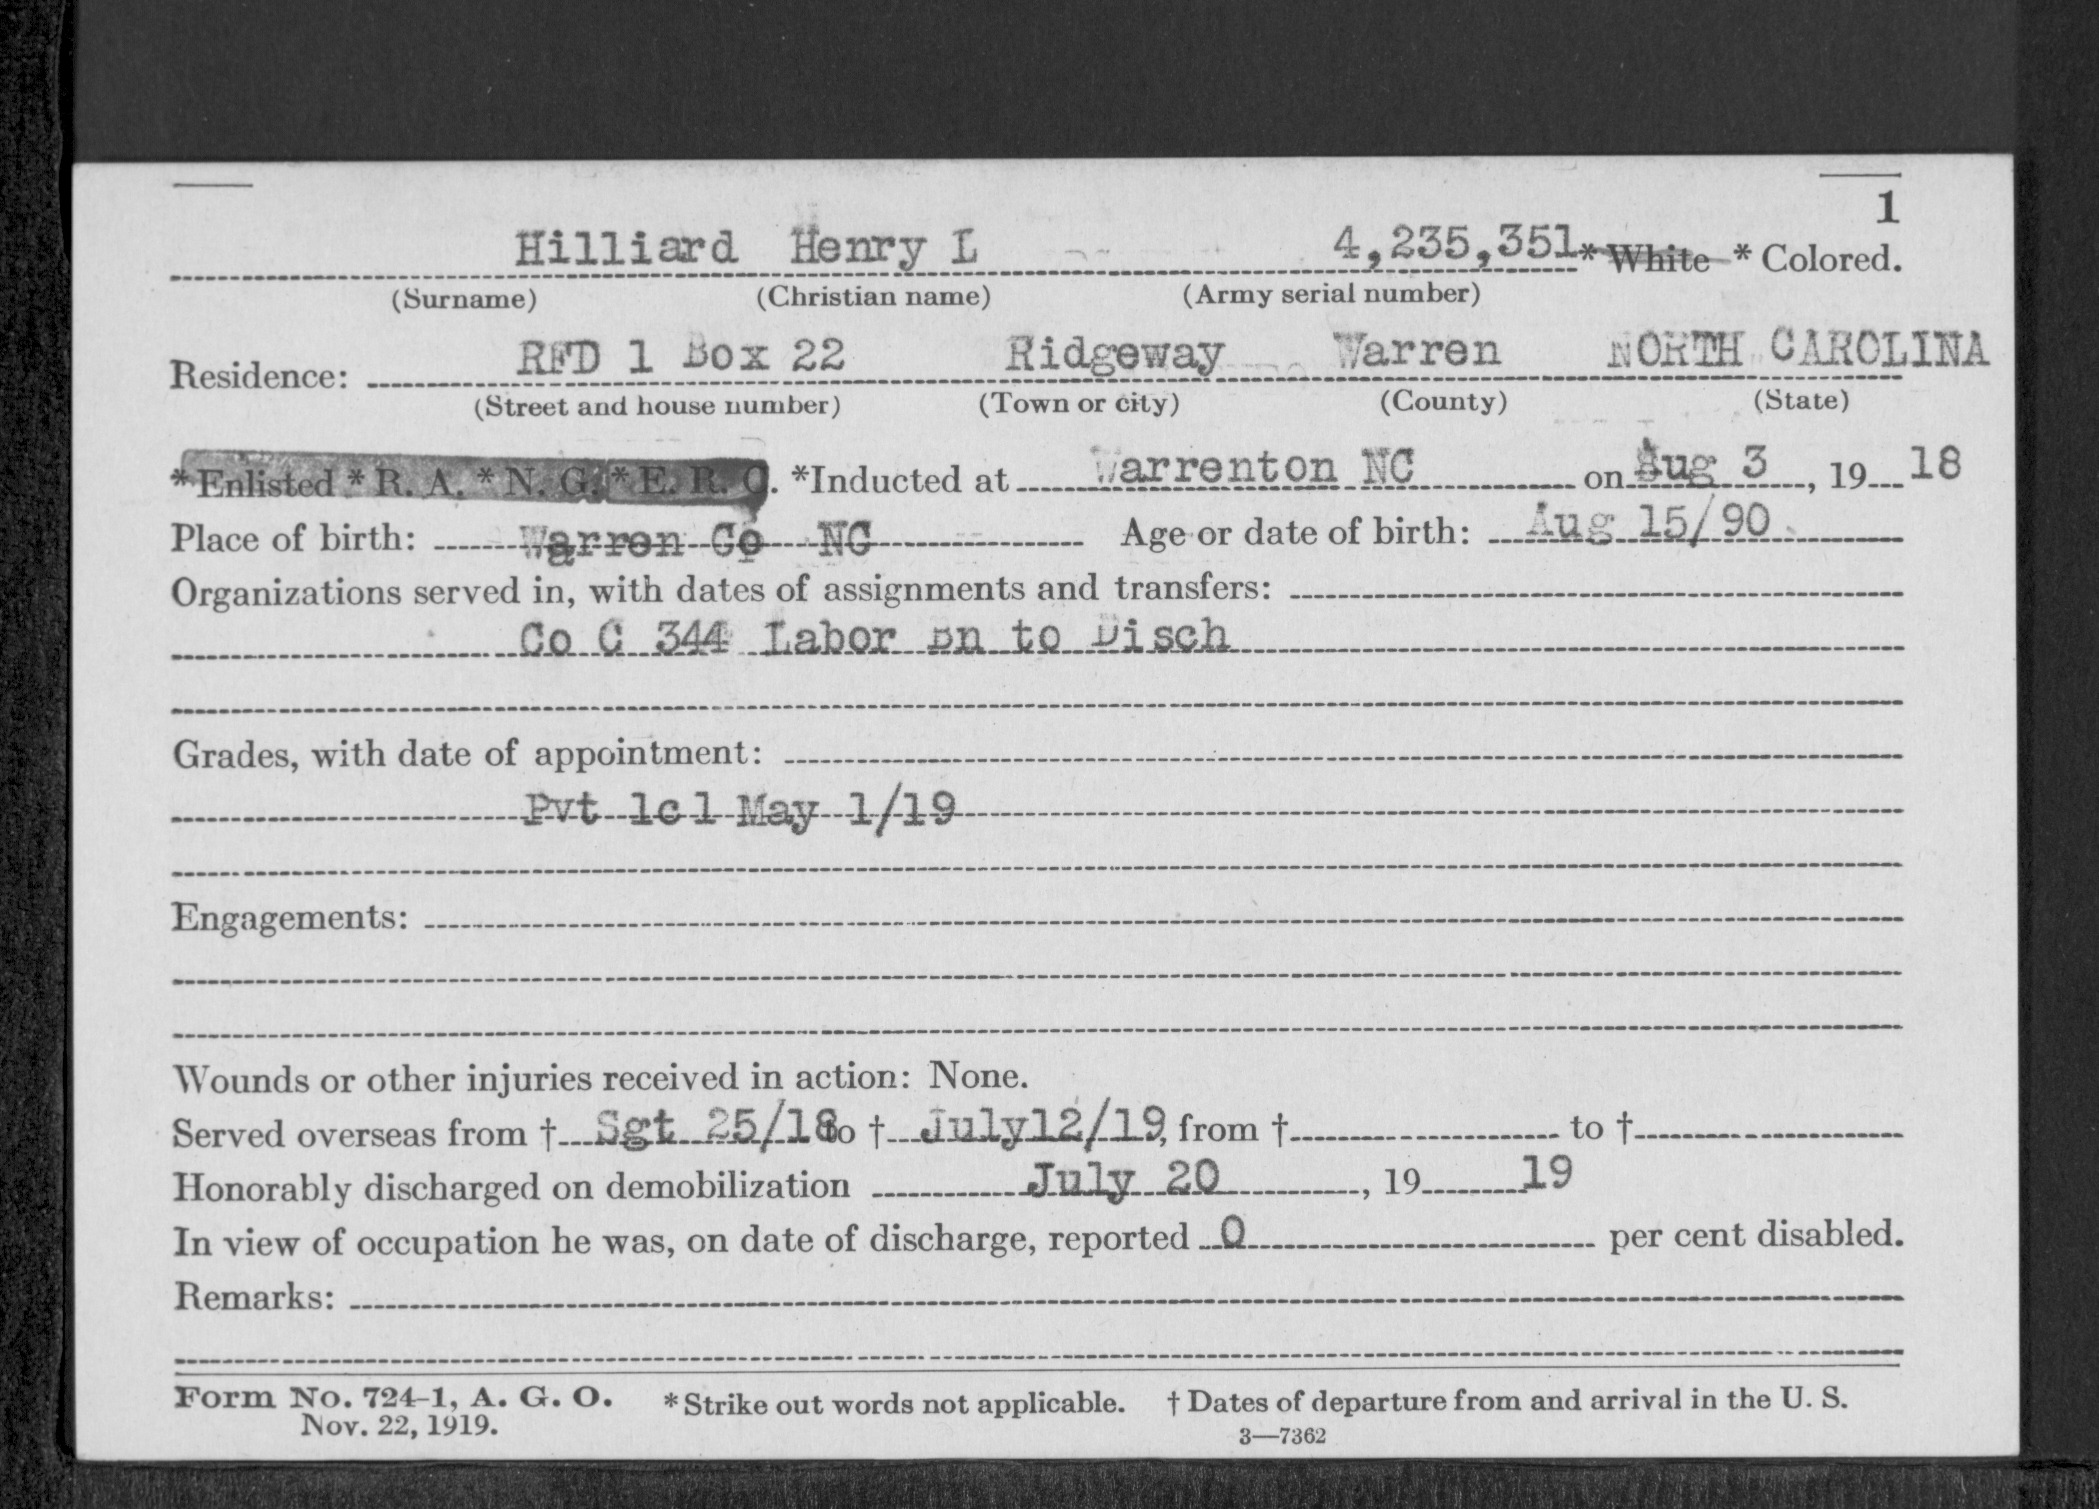 1
Hilliard Henry L 4,235,351 * White * Colored.
(Surname) (Christian name) (Army serial number)
Residence: RFD 1 Box 22 Ridgeway Warren NORTH CAROLINA
(Street and house number) (Town or city) (County) (State)
*Enlisted * R. A. * N. G. * E. R. C. *Inducted at Warrenton NC on Aug 3, 19 18
Place of birth: Warren Co NC Age or date of birth: Aug 15/90
Organizations served in, with dates of assignments and transfers:
Co C 344 Labor Bn to Disch
Grades, with date of appointment:
Pvt 1cl May 1/19
Engagements:
Wounds or other injuries received in action: None.
Served overseas from † Sgt 25/18 to † July12/19, from † to †
Honorably discharged on demobilization July 20, 19 19
In view of occupation he was, on date of discharge, reported 0 per cent disabled.
Remarks:
Form No. 724-1, A. G. O. * Strike out words not applicable. † Dates of departure from and arrival in the U. S.
Nov. 22, 1919. 3—7362